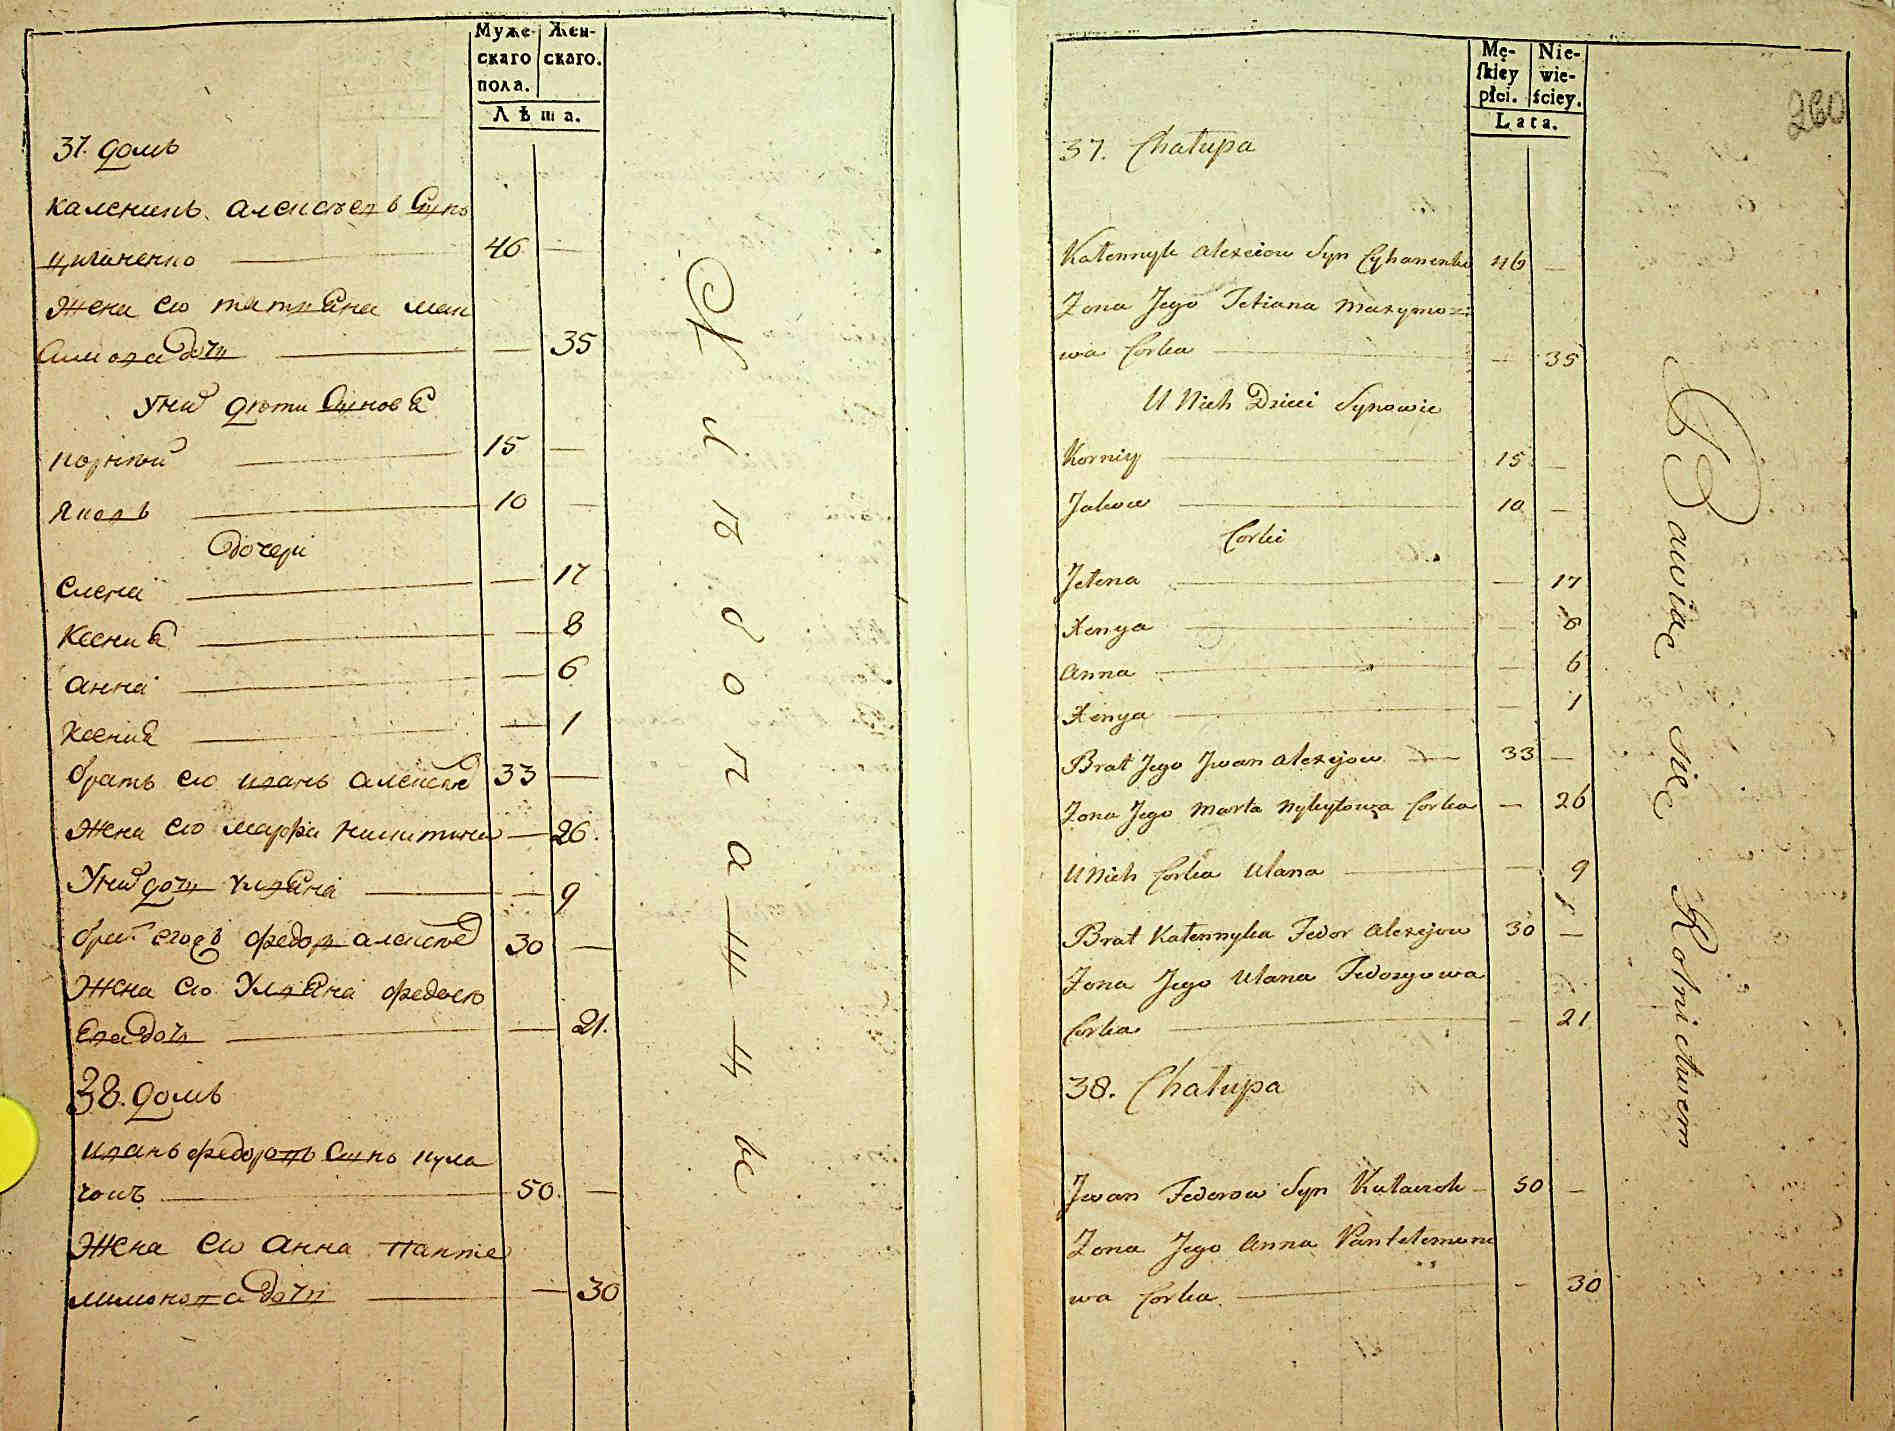 Муже-
скаго
пола.
Жен-
скаго.
Лѣта.
37. домъ
каленикъ алексѣевъ Сынъ
цыганенко 46 —
Жена его татияна мак
симова дочь — 35
У них дѣти Сыновя
корнѣй 15 —
Яковъ 10 —
дочери
елена — 17
Ксения — 8
анна — 6
Ксения — 1
братъ его иванъ алексѣе 33 —
Жена его марфа никитина — 26.
У них дочь уляяна — 9
брат еговъ федор алексѣев 30 —
Жена его Уляяна федосе
ева дочь — 21.
38. домъ
иванъ федоровъ Сынъ кула
чокъ 50. —
Жена его анна Панте
лимонова дочь — 30
Хлѣбопашцы
Mę-
skiey
płci.
Nie-
wie-
ściey.
Lata.
260
37. Chałupa
Kałennyk Alexiow Syn Cyhanenko 46 —
Zona Jego Tetiana Maxymo-
wa Corka — 35
U Nich Dzieci Synowie
Korniy 15 —
Jakow 10 —
Corki
Jełena — 17
Xenya — 8
Anna — 6
Xenya — 1
Brat Jego Jwan Alexijow 33 —
Zona Jego Marta Nykytowa Corka — 26
U Nich Corka Ulana — 9
Brat Kałennyka Fedor Alexijow 30 —
Zona Jego Ulana Fedosyowa
Corka — 21
38. Chałupa
Jwan Fedorow Syn Kułaczok 50 —
Zona Jego Anna Pantełemono
wa Corka — 30
Bawiąc się Rolnictwem